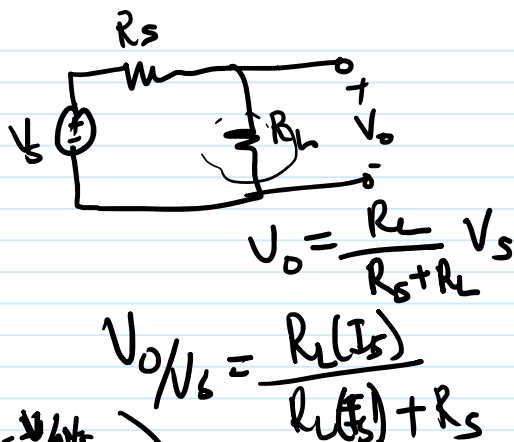 Rs
+
Vs
RL
+
Vo
-
Vo = RL / (Rs + RL) Vs
Vo/Vs = RL(Is) / (RL(Is) + Rs)